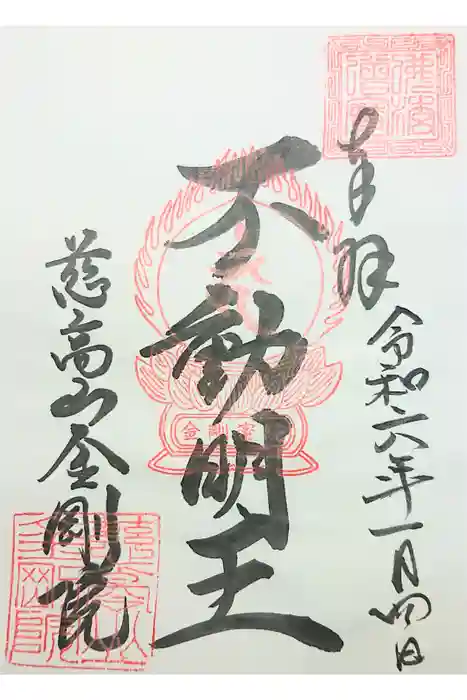 奉拝
令和六年一月四日
不動明王
金剛寳
慈高山金剛院